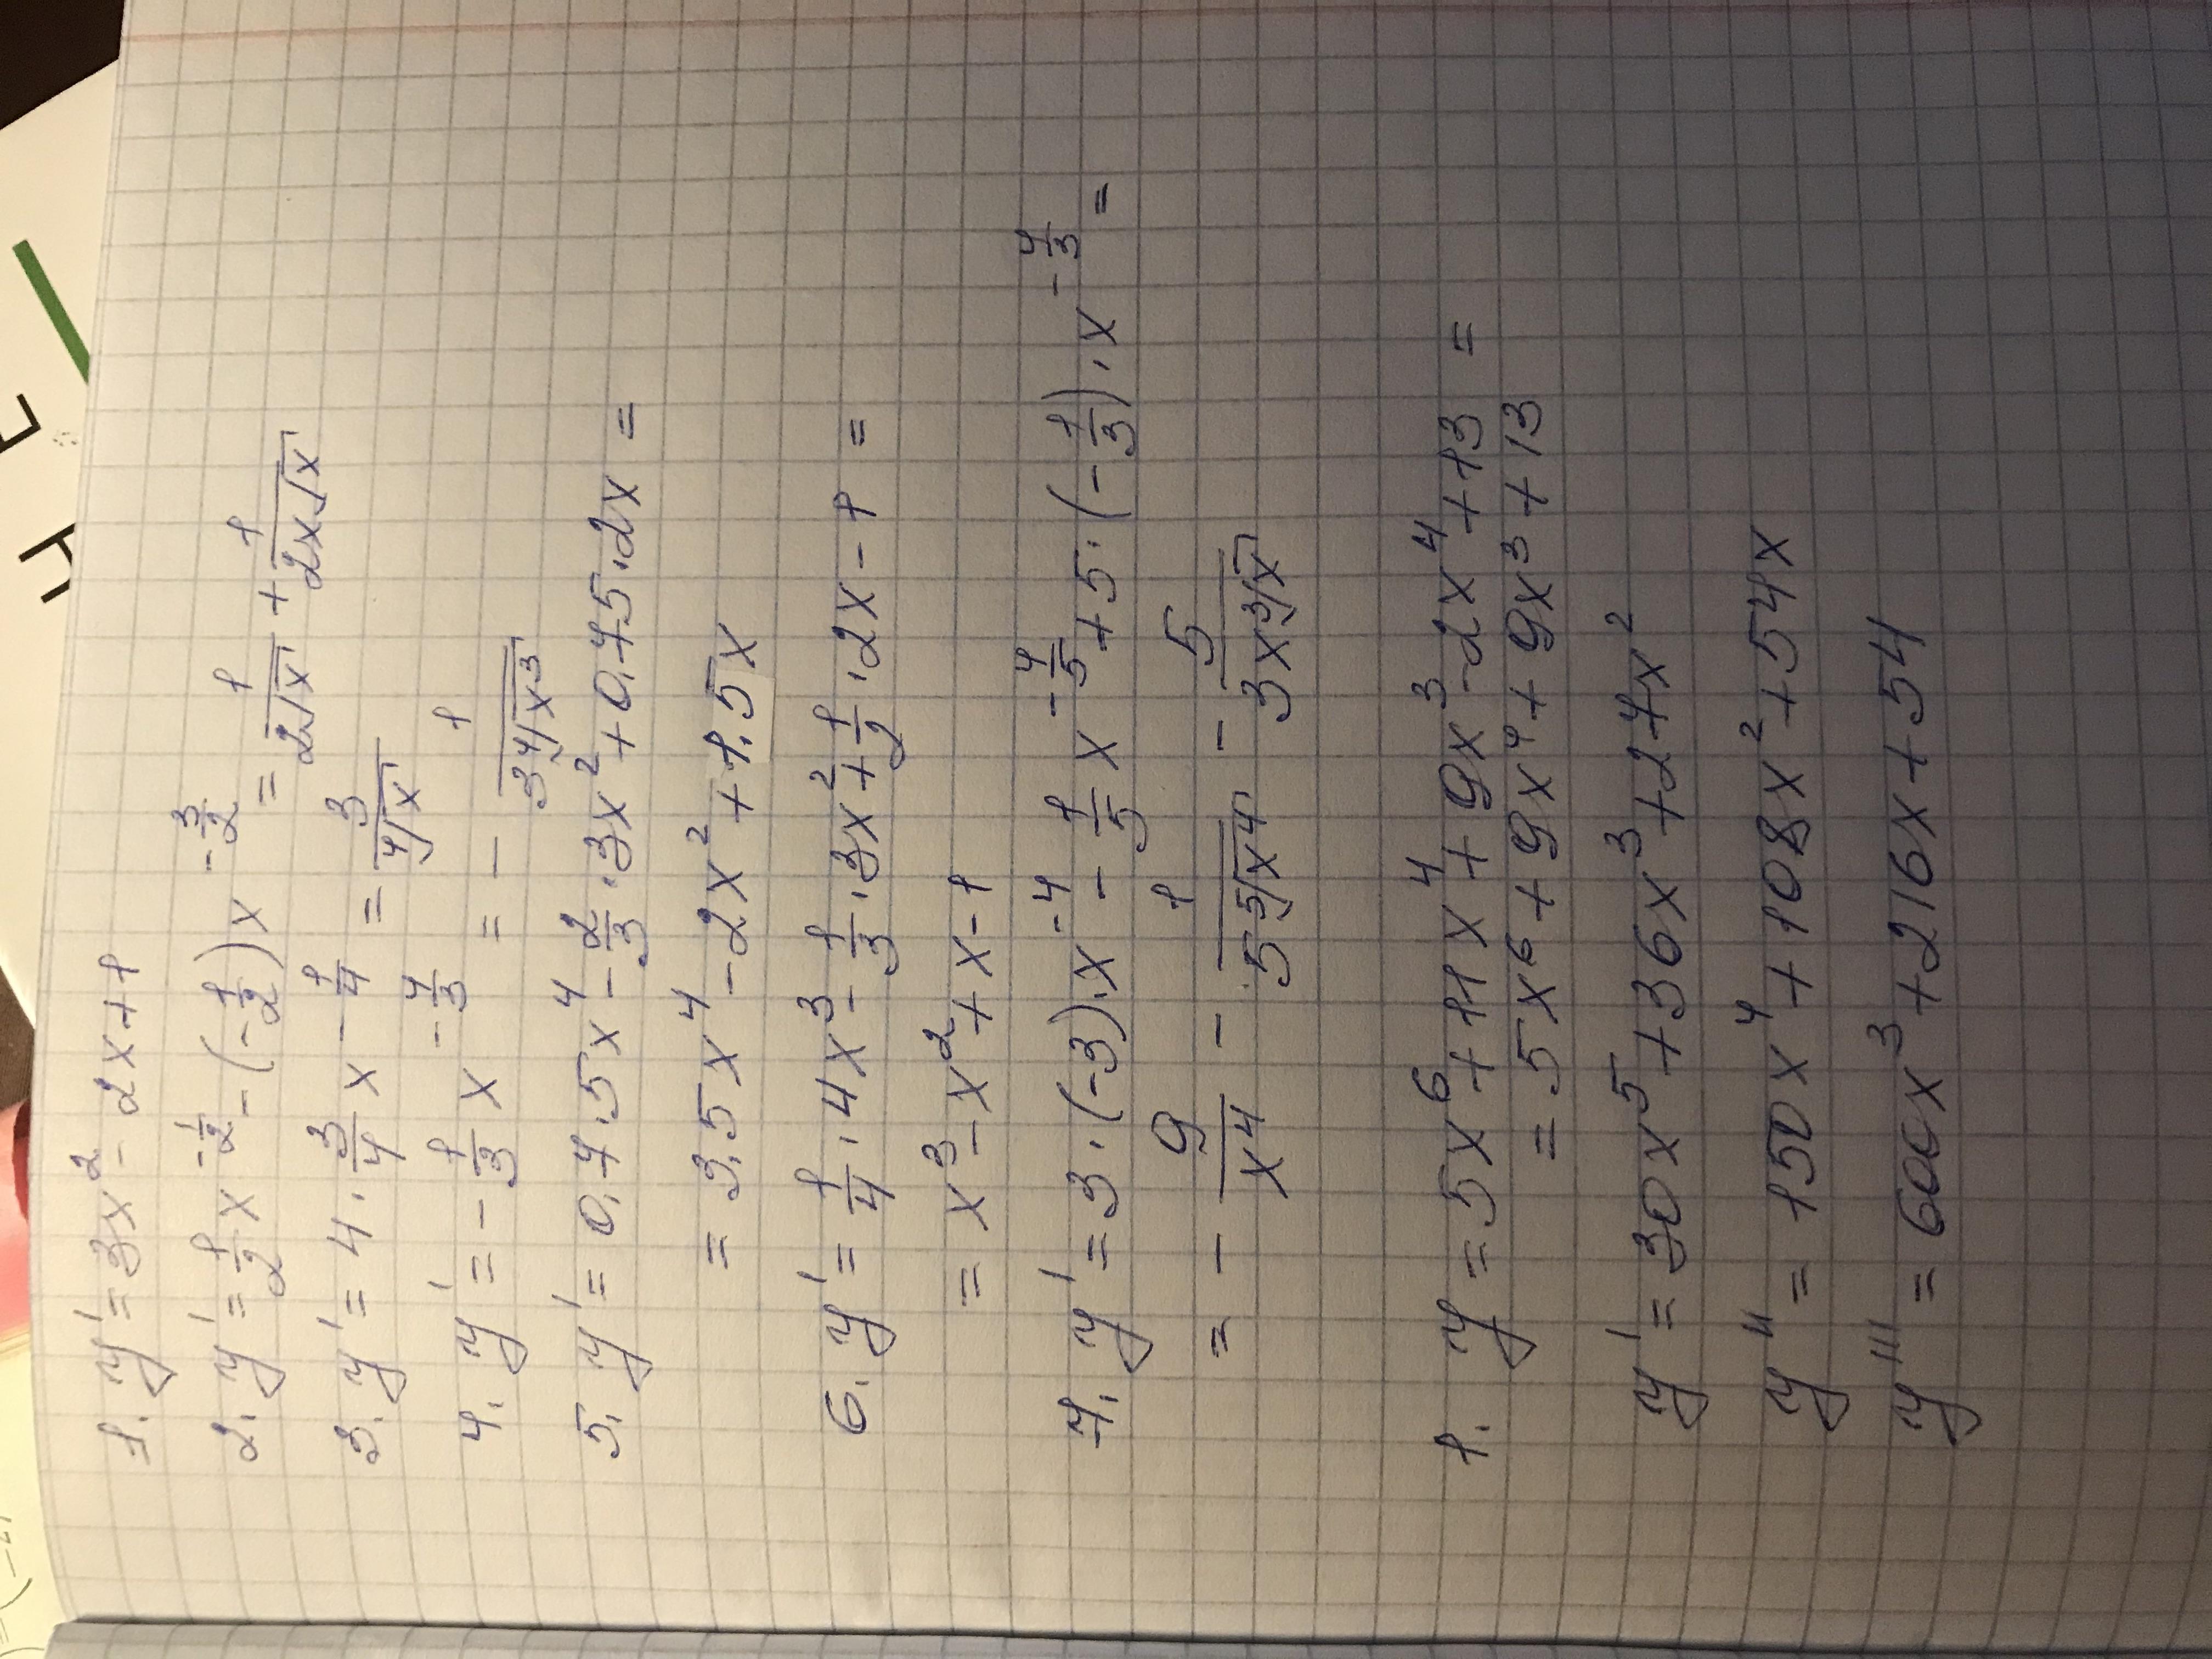 1. y' = 3x² - 2x + 1
2. y' = 1/2 x^(-1/2) - (-1/2)x^(-3/2) = 1/(2√x) + 1/(2x√x)
3. y' = 4 · 3/4 x^(-1/4) = 3/⁴√x
4. y' = -1/3 x^(-4/3) = - 1/(3 ⁴√x³)
5. y' = 0,7 · 5x⁴ - 2/3 · 3x² + 0,75 · 2x =
= 3,5x⁴ - 2x² + 1,5x
6. y' = 1/4 · 4x³ - 1/3 · 3x² + 1/2 · 2x - 1 =
= x³ - x² + x - 1
7. y' = 3 · (-3) · x⁻⁴ - 1/5 x^(-4/5) + 5 · (-1/3) · x^(-4/3) =
= - 9/x⁴ - 1/(5 ⁵√x⁴) - 5/(3x ³√x)
1. y = 5x⁶ + 11x⁴ + 9x³ - 2x⁴ + 13 =
= 5x⁶ + 9x⁴ + 9x³ + 13
y' = 30x⁵ + 36x³ + 27x²
y'' = 150x⁴ + 108x² + 54x
y''' = 600x³ + 216x + 54